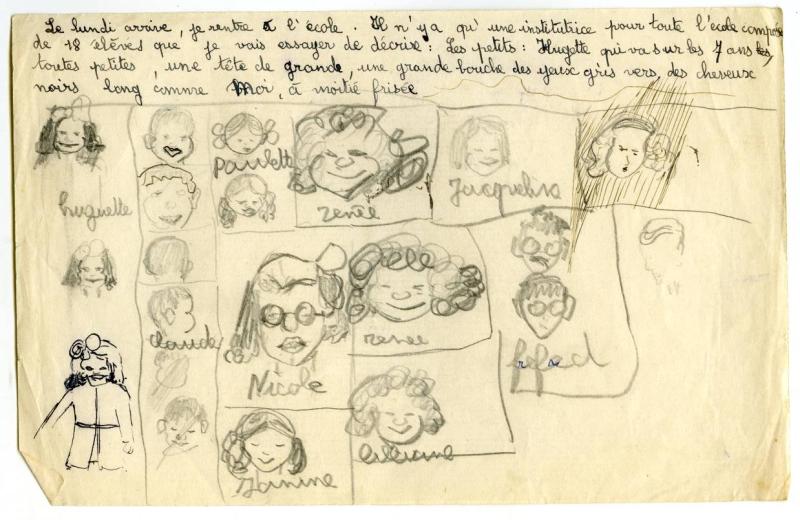 Le lundi arrive, je rentre à l'école. Il n'y a qu'une institutrice pour toute l'école composée
de 18 élèves que je vais essayer de décrire : Les petits : Hugette qui va sur les 7 ans
toutes petites, une tête de grande, une grande bouche des yeux gris vers, des cheveux
noirs long comme Moi, à moitié frisée
Paulette
renée
Jacqueline
huguette
claude
Nicole
renée
Janine
liliane